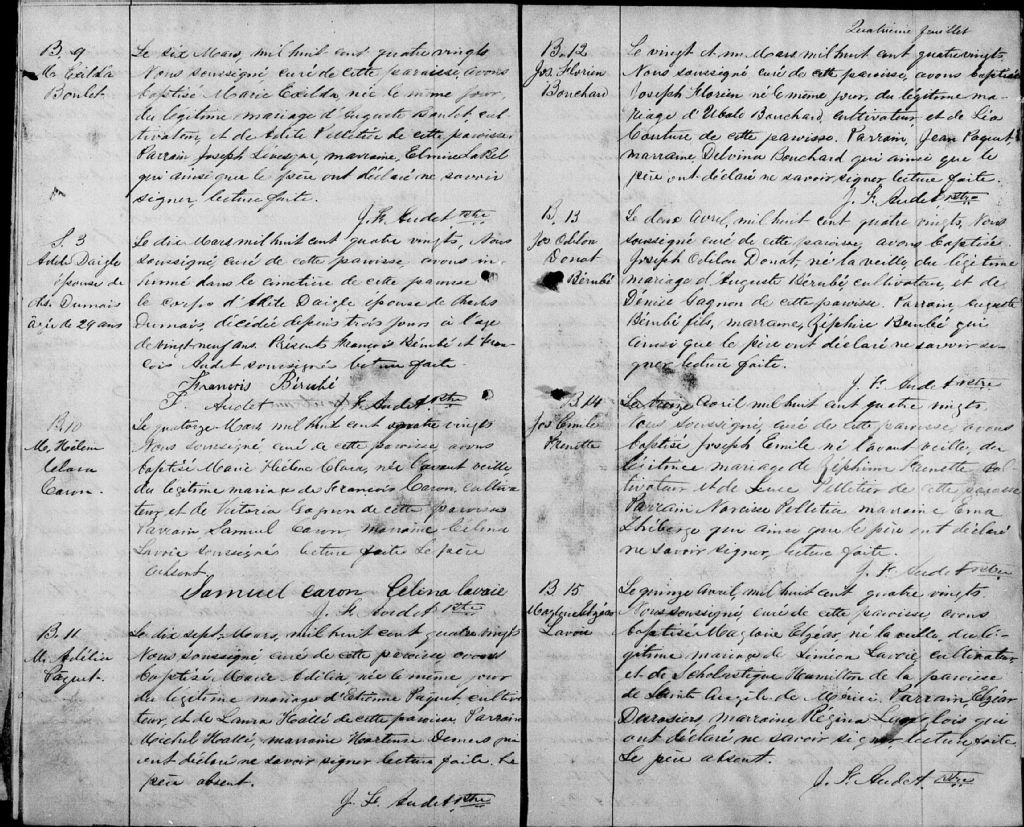 B. 9
M. Exilda
Boulet
Le six Mars, mil huit cent quatre vingts
Nous soussigné curé de cette paroisse, avons
baptisé Marie Exilda, née le même jour,
du légitime mariage d'Auguste Boulet, cul-
tivateur, et de Adite Pelletier de cette paroisse
Parrain Joseph Lévesque, marraine, Elmire LaBel
qui ainsi que le père ont déclaré ne savoir
signer, lecture faite.
J. F. Audet ptre
S. 3
Adite Daigle
épouse de
Chs. Dumais
âgée de 29 ans
Le dix Mars mil huit cent quatre vingts, Nous
soussigné, curé de cette paroisse, avons in-
humé dans le cimetière de cette paroisse
le corps d'Adite Daigle épouse de Charles
Dumais, décédée depuis trois jours à l'age
de vingt neuf ans. Présents François Bérubé et Fran-
cois Audet soussignés lecture faite.
François Bérubé
F. Audet J. F. Audet ptre
B. 10
M. Hélène
Clara
Caron.
Le quatorze Mars mil huit cent quatre vingts
Nous soussigné, curé de cette paroisse avons
baptisé Marie Hélène Clara, née l'avant veille,
du légitime mariage de François Caron, cultiva-
teur et de Victoria Gagnon de cette paroisse
Parrain Samuel Caron marraine Célina
Lavoie soussignés lecture faite Le père
absent.
Samuel Caron Célina Lavoie
J. F. Audet ptre
B. 11
M. Adélia
Paquet.
Le dix sept Mars, mil huit cent quatre vingts
Nous soussigné curé de cette paroisse, avons
baptisé Marie Adélia, née le même jour
du légitime mariage d'Etienne Paquet, cultiva-
teur, et de Laura Hallé de cette paroisse, Parrain
Michel Hallé, marraine Hortense Demers qui
ont déclaré ne savoir signer lecture faite. Le
père absent.
J. F. Audet ptre
Quatrième feuillet
B. 12
Jos Florien
Bouchard
Le vingt et un Mars mil huit cent quatre vingts,
Nous soussigné curé de cette paroisse, avons baptisé
Joseph Florien né le même jour, du légitime ma-
riage d'Ubald Bouchard, cultivateur, et de Léa
Couture de cette paroisse. Parrain, Jean Paquet,
marraine Delvina Bouchard qui ainsi que le
père ont déclaré ne savoir signer lecture faite.
J. F. Audet ptre
B. 13
Jos Odilon
Donat
Bérubé
Le deux Avril, mil huit cent quatre vingts, Nous
soussigné curé de cette paroisse, avons baptisé
Joseph Odilon Donat, né la veille, du légitime
mariage d'Auguste Bérubé, cultivateur, et de
Denise Gagnon de cette paroisse. Parrain, Auguste
Bérubé fils, marraine, Zéphire Bérubé qui
ainsi que le père ont déclaré ne savoir si-
gner lecture faite.
J. F. Audet ptre
B 14
Jos Emile
Frenette
Le treize Avril mil huit cent quatre vingts
Nous soussigné, curé de cette paroisse, avons
baptisé Joseph Emile né l'avant veille, du
légitime mariage de Zéphirin Frenette cul-
tivateur et de Luce Pelletier de cette paroisse
Parrain Narcisse Pelletier marraine Ema
Théberge qui ainsi que le père ont déclaré
ne savoir signer, lecture faite.
J. F. Audet ptre
B 15
Magloire Elzéar
Lavoie
Le quinze Avril, mil huit cent quatre vingts
Nous soussigné, curé de cette paroisse, avons
baptisé Magloire Elzéar, né la veille, du lé-
gitime mariage de Siméon Lavoie, cultivateur
et de Scholastique Hamilton de la paroisse
de Sainte Angèle de Mérici. Parrain, Elzéar
Durosiers, marraine Régina Langlois qui
ont déclaré ne savoir signer, lecture faite
Le père absent.
J. F. Audet ptre